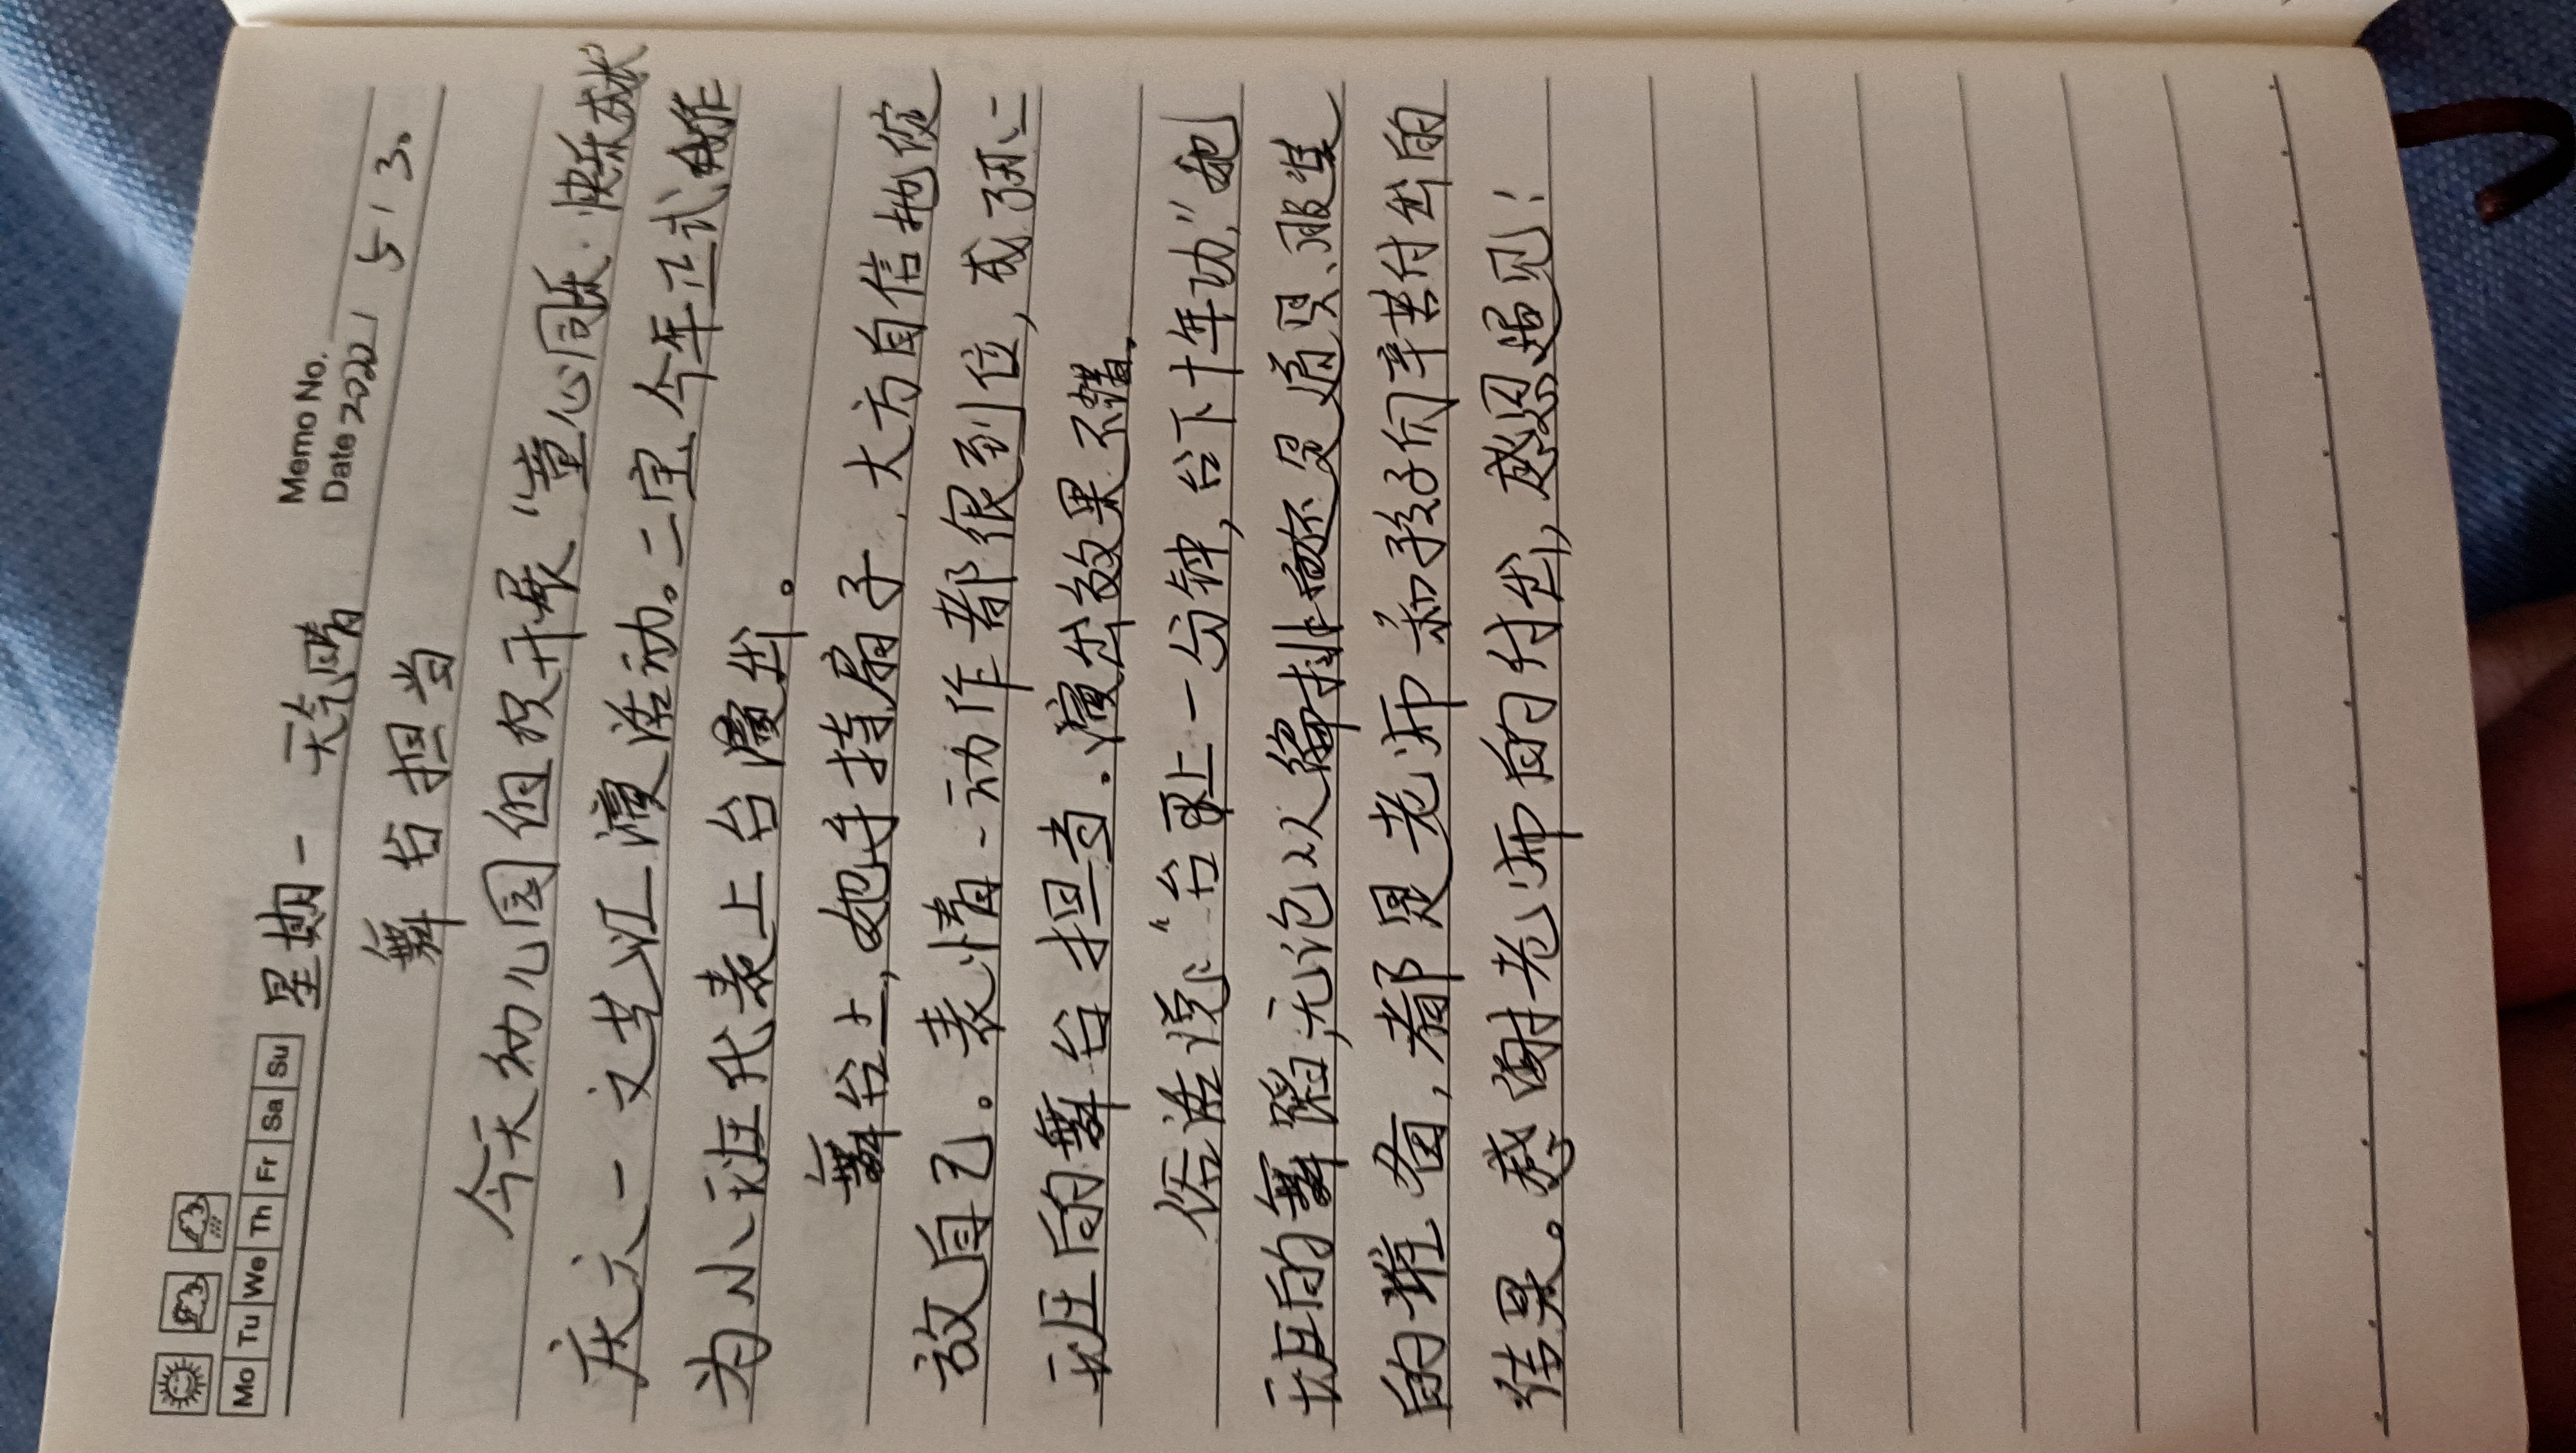 Memo No.
Mo Tu We Th Fr Sa Su 星期一 天气晴 Date 2022 / 5 / 3.
舞台担当
今天幼儿园组织开展“童心同乐·快乐成长
庆六一文艺汇演活动。二宝今年正式作
为小班代表上台演出。
舞台上,她手持扇子、大方自信地绽
放自己。表情、动作都很到位,成了小二
班的舞台担当.演出效果不错.
俗话说:“台上一分钟,台下十年功.”她
班的舞蹈,无论从编排还是道具、服装
的准备,都是老师和孩子们辛苦付出的
结果。感谢老师的付出,感恩遇见!